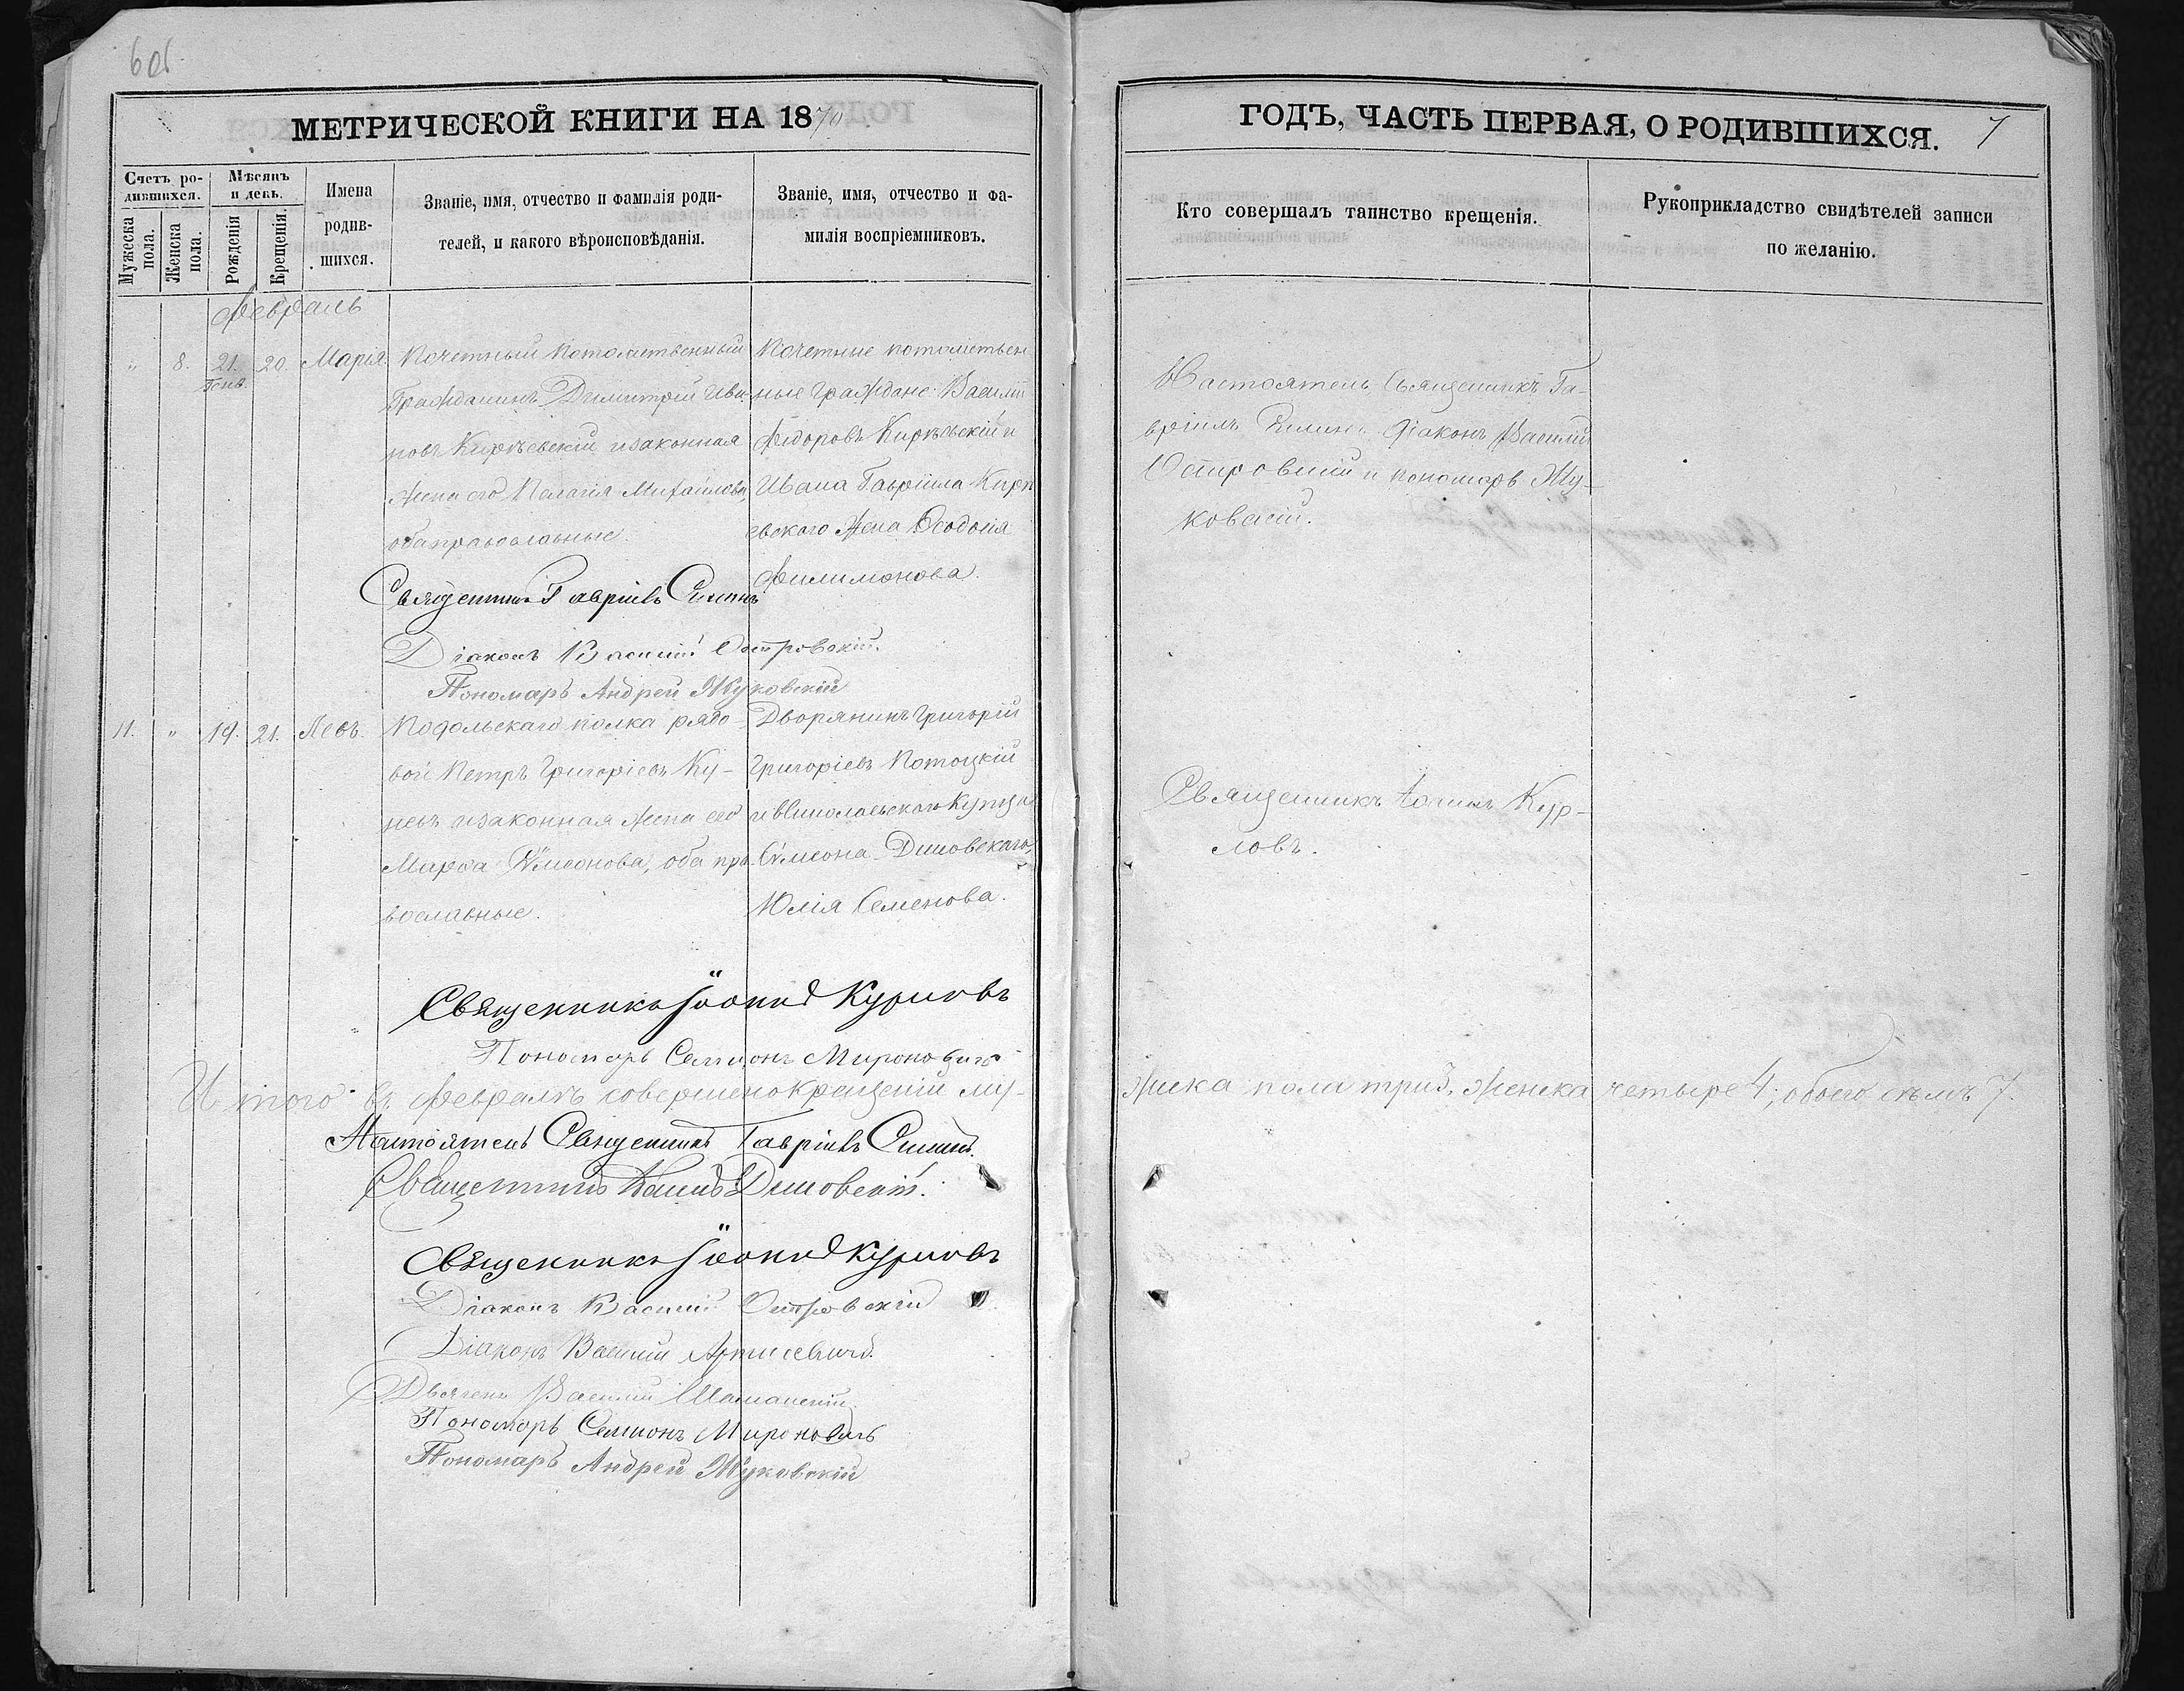 601
МЕТРИЧЕСКОЙ КНИГИ НА 1870
ГОДЪ, ЧАСТЬ ПЕРВАЯ, О РОДИВШИХСЯ. 7
Счетъ родившихся.
Мѣсяцъ и день.
Мужеска пола.
Женска пола.
Рожденія
Крещенія.
Имена родившихся.
Званіе, имя, отчество и фамилія роди-
телей, и какого вѣроисповѣданія.
Званіе, имя, отчество и фа-
милія воспріемниковъ.
Кто совершалъ таинство крещенія.
Рукоприкладство свидѣтелей записи
по желанію.
Февраль
" 8. 21. Генв. 20. Марія.
Почетный потомственный
Гражданинъ Димитрій Ива-
новъ Кирѣевскій и законная
жена его Пелагія Михайлова,
оба православные.
Почетные потомствен
ные граждане: Василій
Ѳедоровъ Кирѣевскій и
Ивана Гавріила Кирѣ
евского жена Ѳеодосія
Филимонова.
Настоятель Священникъ Га-
вріилъ Діаконъ Василій
Островскій и пономарь Жу-
ковскій.
Священникъ Гавріилъ
Діаконъ Василій Островскій.
Пономарь Андрей Жуковскій
11. " 19. 21. Левъ.
Подольскаго полка рядо-
вой Петръ Григоріевъ Ку-
невъ и законная жена его
Марѳа Сѵмеонова, оба пра-
вославные.
Дворянинъ Григорій
Григоріевъ Потоцкій
и купца
Сѵмеона Димовскаго,
Юлія Семенова.
Священникъ Іоаннъ Кур-
ловъ.
Священникъ Іоаннъ Курловъ
Пономарь Семіонъ Мироновичъ
Итого въ февралѣ совершено крещеній му-
жеска пола три 3, женска четыре 4; обоего семь 7.
Настоятель Священникъ Гавріилъ
Священникъ Димовскій.
Священникъ Іоаннъ Курловъ
Діаконъ Василій Островскій
Діаконъ Василій
Дьячекъ Василій
Пономарь Семіонъ Мироновичъ
Пономарь Андрей Жуковскій